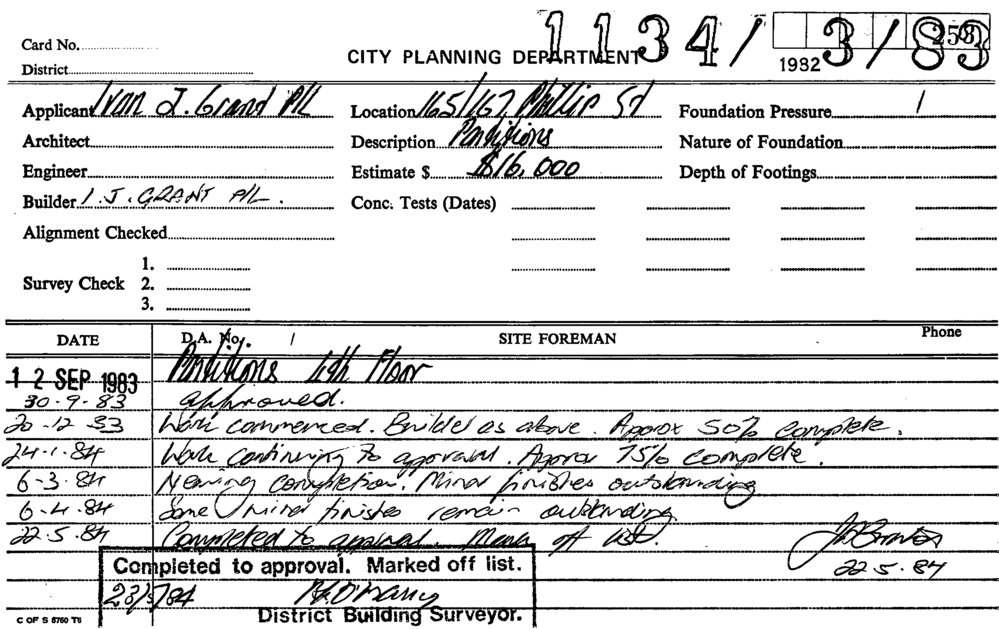 1134/3/83
253
Card No.
CITY PLANNING DEPARTMENT
1982
District
Applicant Ivan J. Grand P/L
Location 165/167, Phillip St
Foundation Pressure
Architect
Description Partitions
Nature of Foundation
Engineer
Estimate $ $16,000
Depth of Footings
Builder I. J. GRANT P/L.
Conc. Tests (Dates)
Alignment Checked
Survey Check
1.
2.
3.
DATE
D.A. No.
SITE FOREMAN
Phone
12 SEP 1983 Partitions 4th Floor
30-9-83 approved.
20-12 83 Work commenced. Builder as above. Approx 50% complete.
24-1-84 Work continuing to approval. Approx 75% complete.
6-3-84 Nearing completion. Minor finishes outstanding
6-4-84 Some minor finishes remain outstanding
22-5-84 Completed to approval. Mark off list.
22-5-84
Completed to approval. Marked off list.
District Building Surveyor.
C OF S 6760 T6